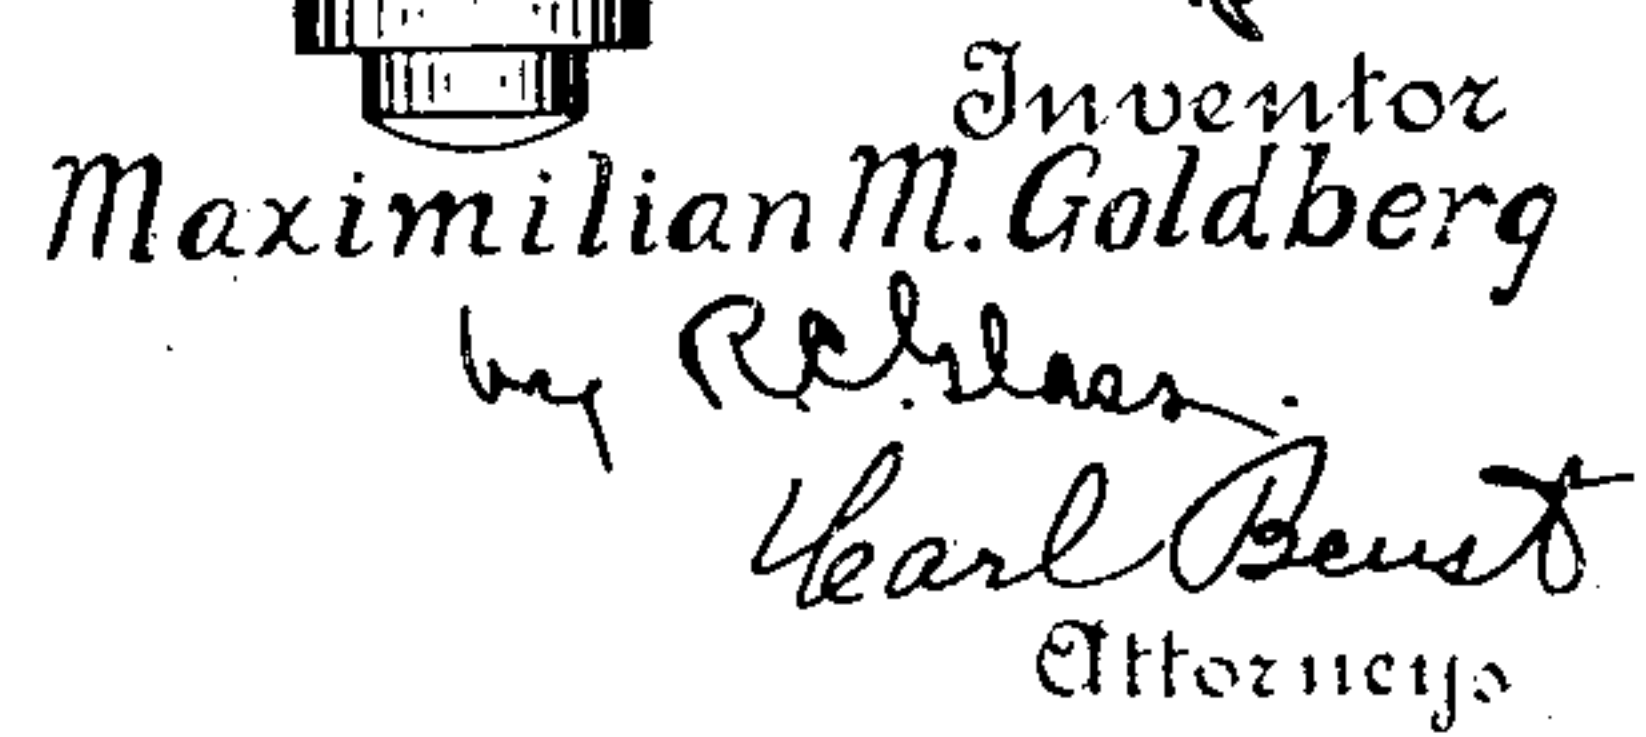 Inventor
Maximilian M. Goldberg
by R. C. Glass.
Earl Beust
Attorneys